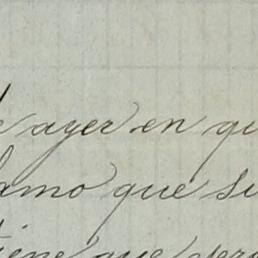 ayer en qu
amo que su
tiene que